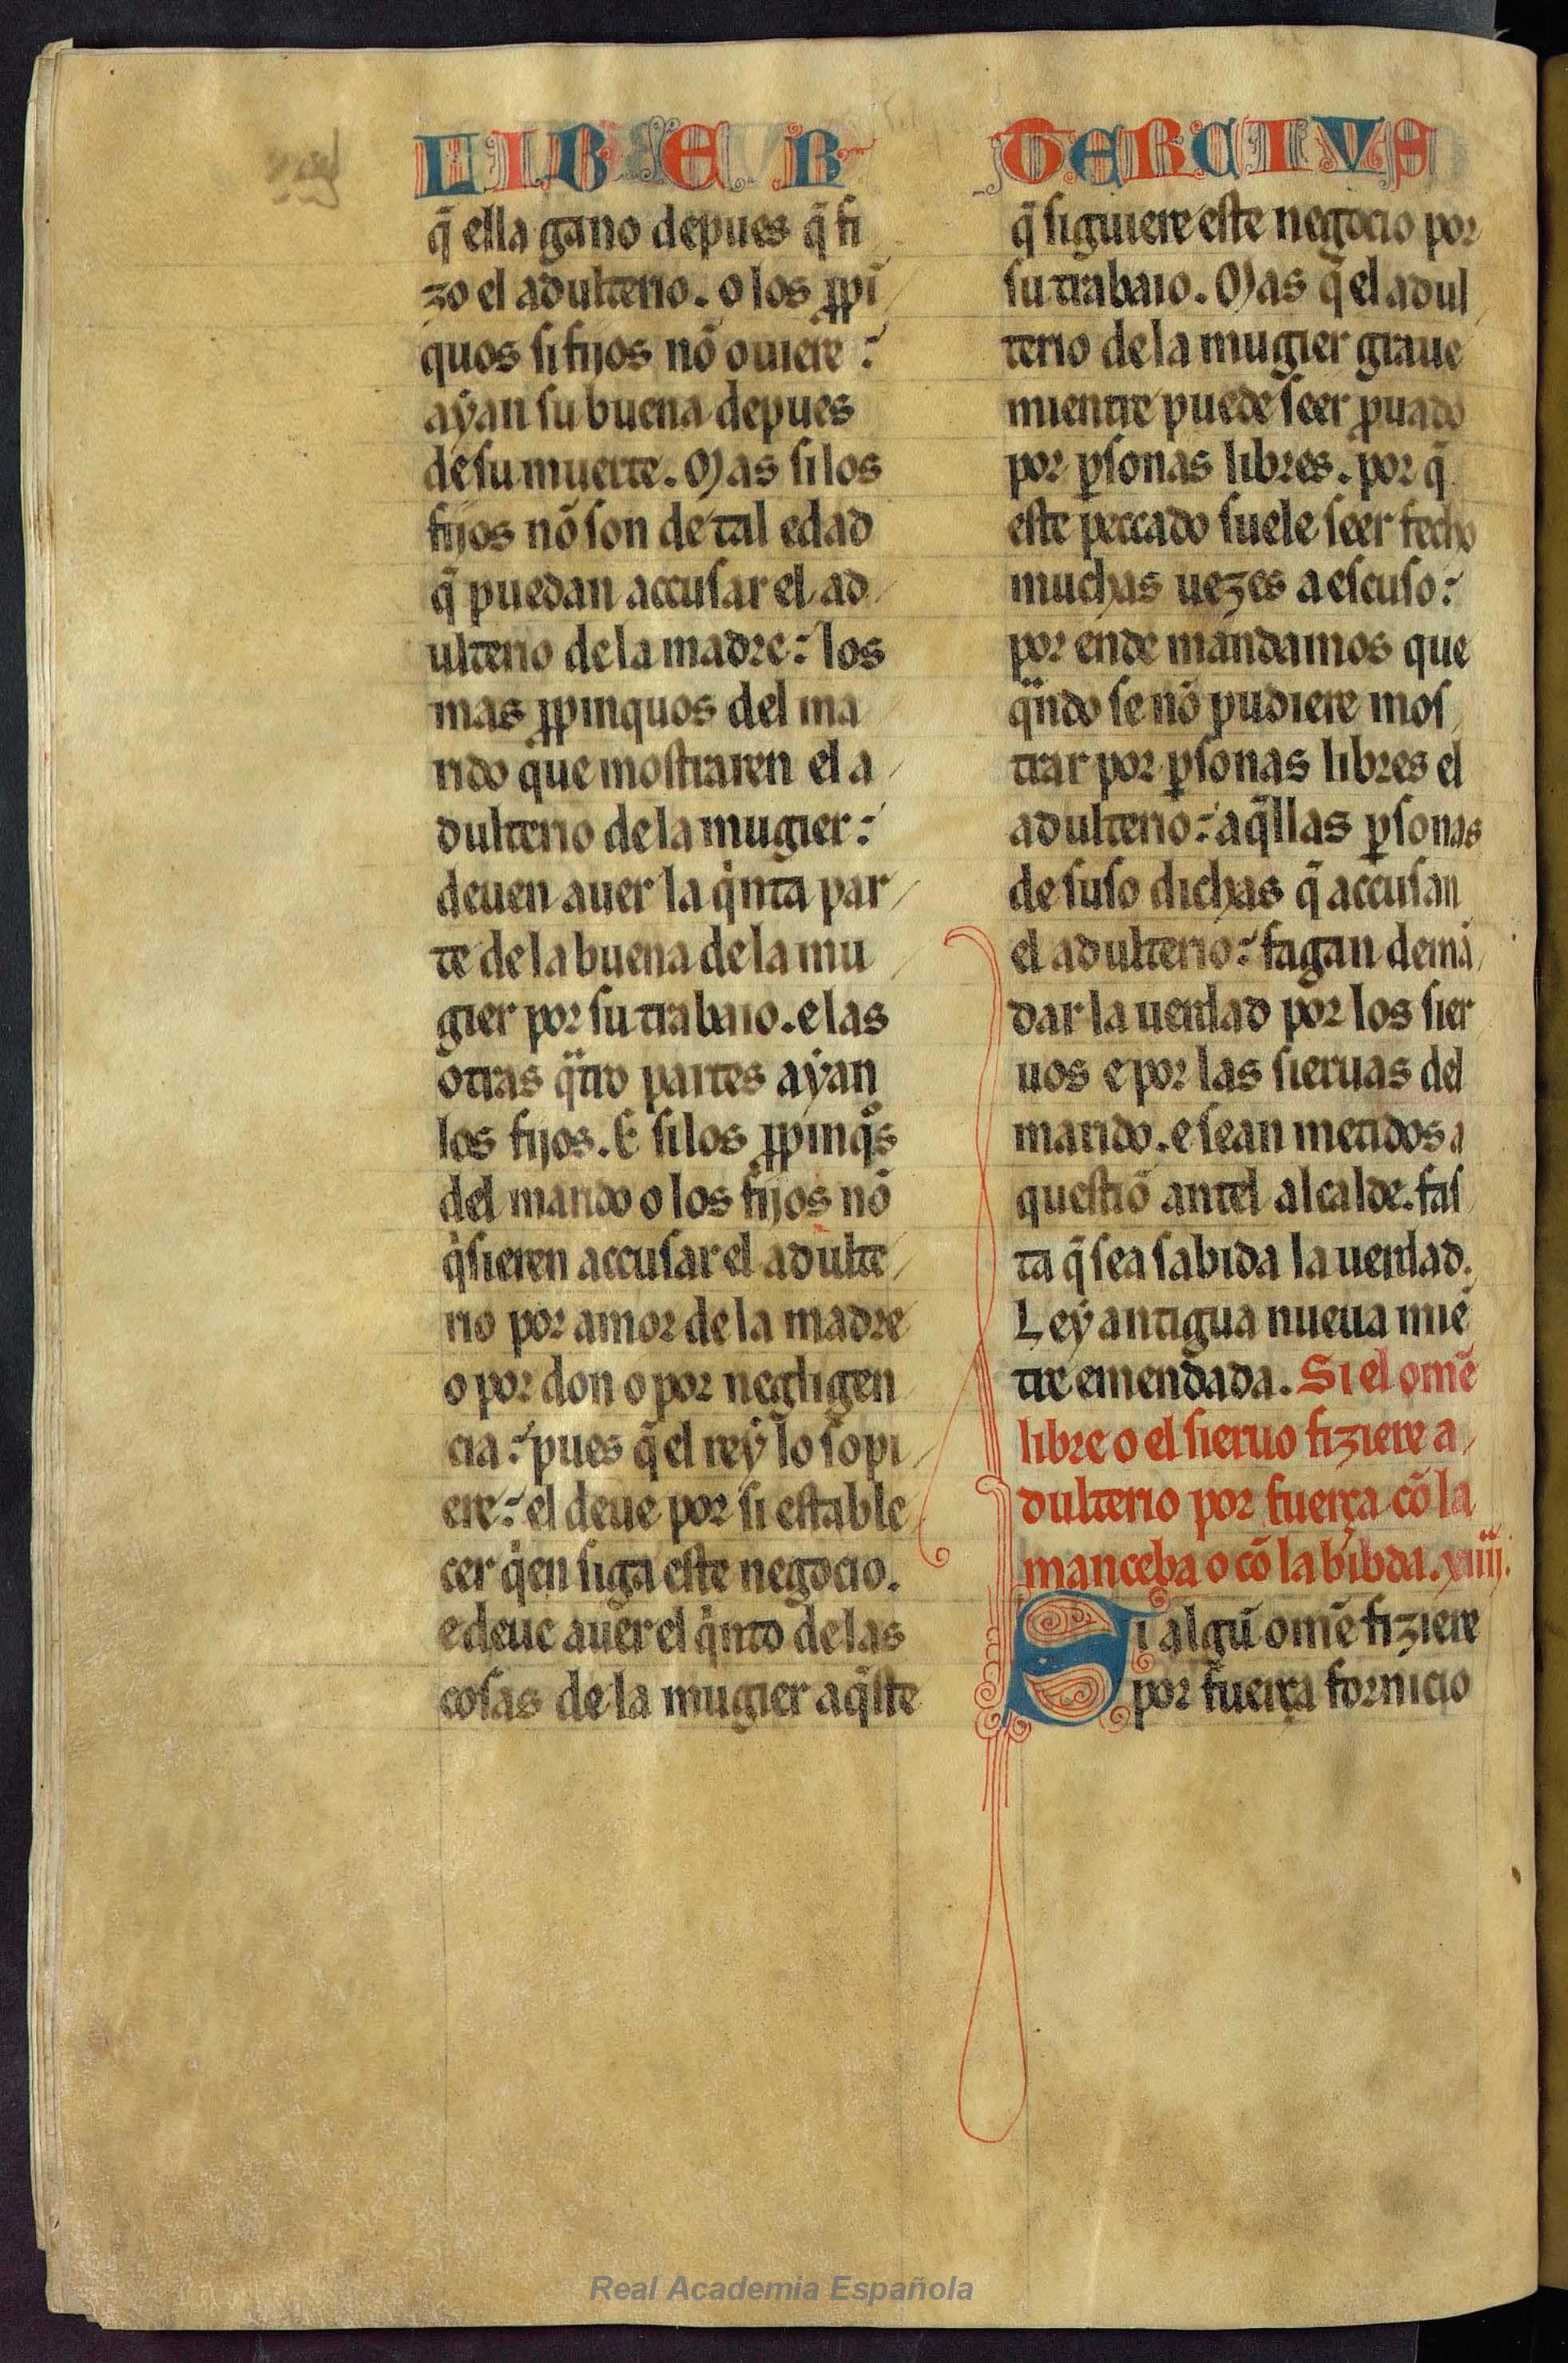 LIBER TERCIUS
q̃ ella gano depues q̃ fi
zo el adulterio. o los ꝓpĩ
quos si fijos nõ ouiere :
aẏan su buena depues
de su muerte. Mas si los
fijos nõ son de tal edad
q̃ puedan accusar el ad
ulterio de la madre: los
mas ꝓpinquos del ma
rido que mostraren el a
dulterio de la mugier:
deuen auer la qͥnta par
te de la buena de la mu
gier por su trabaio. e las
otras qᷓtro partes aẏan
los fijos. E si los ꝓpinqͦs
del marido o los fijos nõ
qͥsieren accusar el adulte
rio por amor de la madre
o por don o por negligen
cia: pues q̃ el reẏ lo sopi
ere: el deue por si estable
cer qͥen siga este negocio.
e deue auer el qͥnto de las
cosas de la mugier aq̃ste
q̃ siguiere este negocio por
su trabaio. Mas q̃ el adul
terio de la mugier graue
mientre puede seer ꝓuado
por ꝑsonas libres. por q̃
este peccado suele seer fecho
muchas uezes a escuso:
por ende mandamos que
qᷓndo se nõ pudiere mos
trar por ꝑsonas libres el
adulterio: aq̃llas ꝑsonas
de suso dichas q̃ accusan
el adulterio: fagan demã
dar la uerdad por los sier
uos e por las sieruas del
marido. e sean metidos a
questiõ antel alcalde. fas
ta q̃ sea sabida la uerdad.
Leẏ antigua nueua miẽ
tre emendada. Si el omẽ
libre o el sieruo fiziere a
dulterio por fuerça cõ la
manceba o cõ la bibda. xiiij.
Si algũ omẽ fiziere
por fuerça fornicio
Real Academia Española